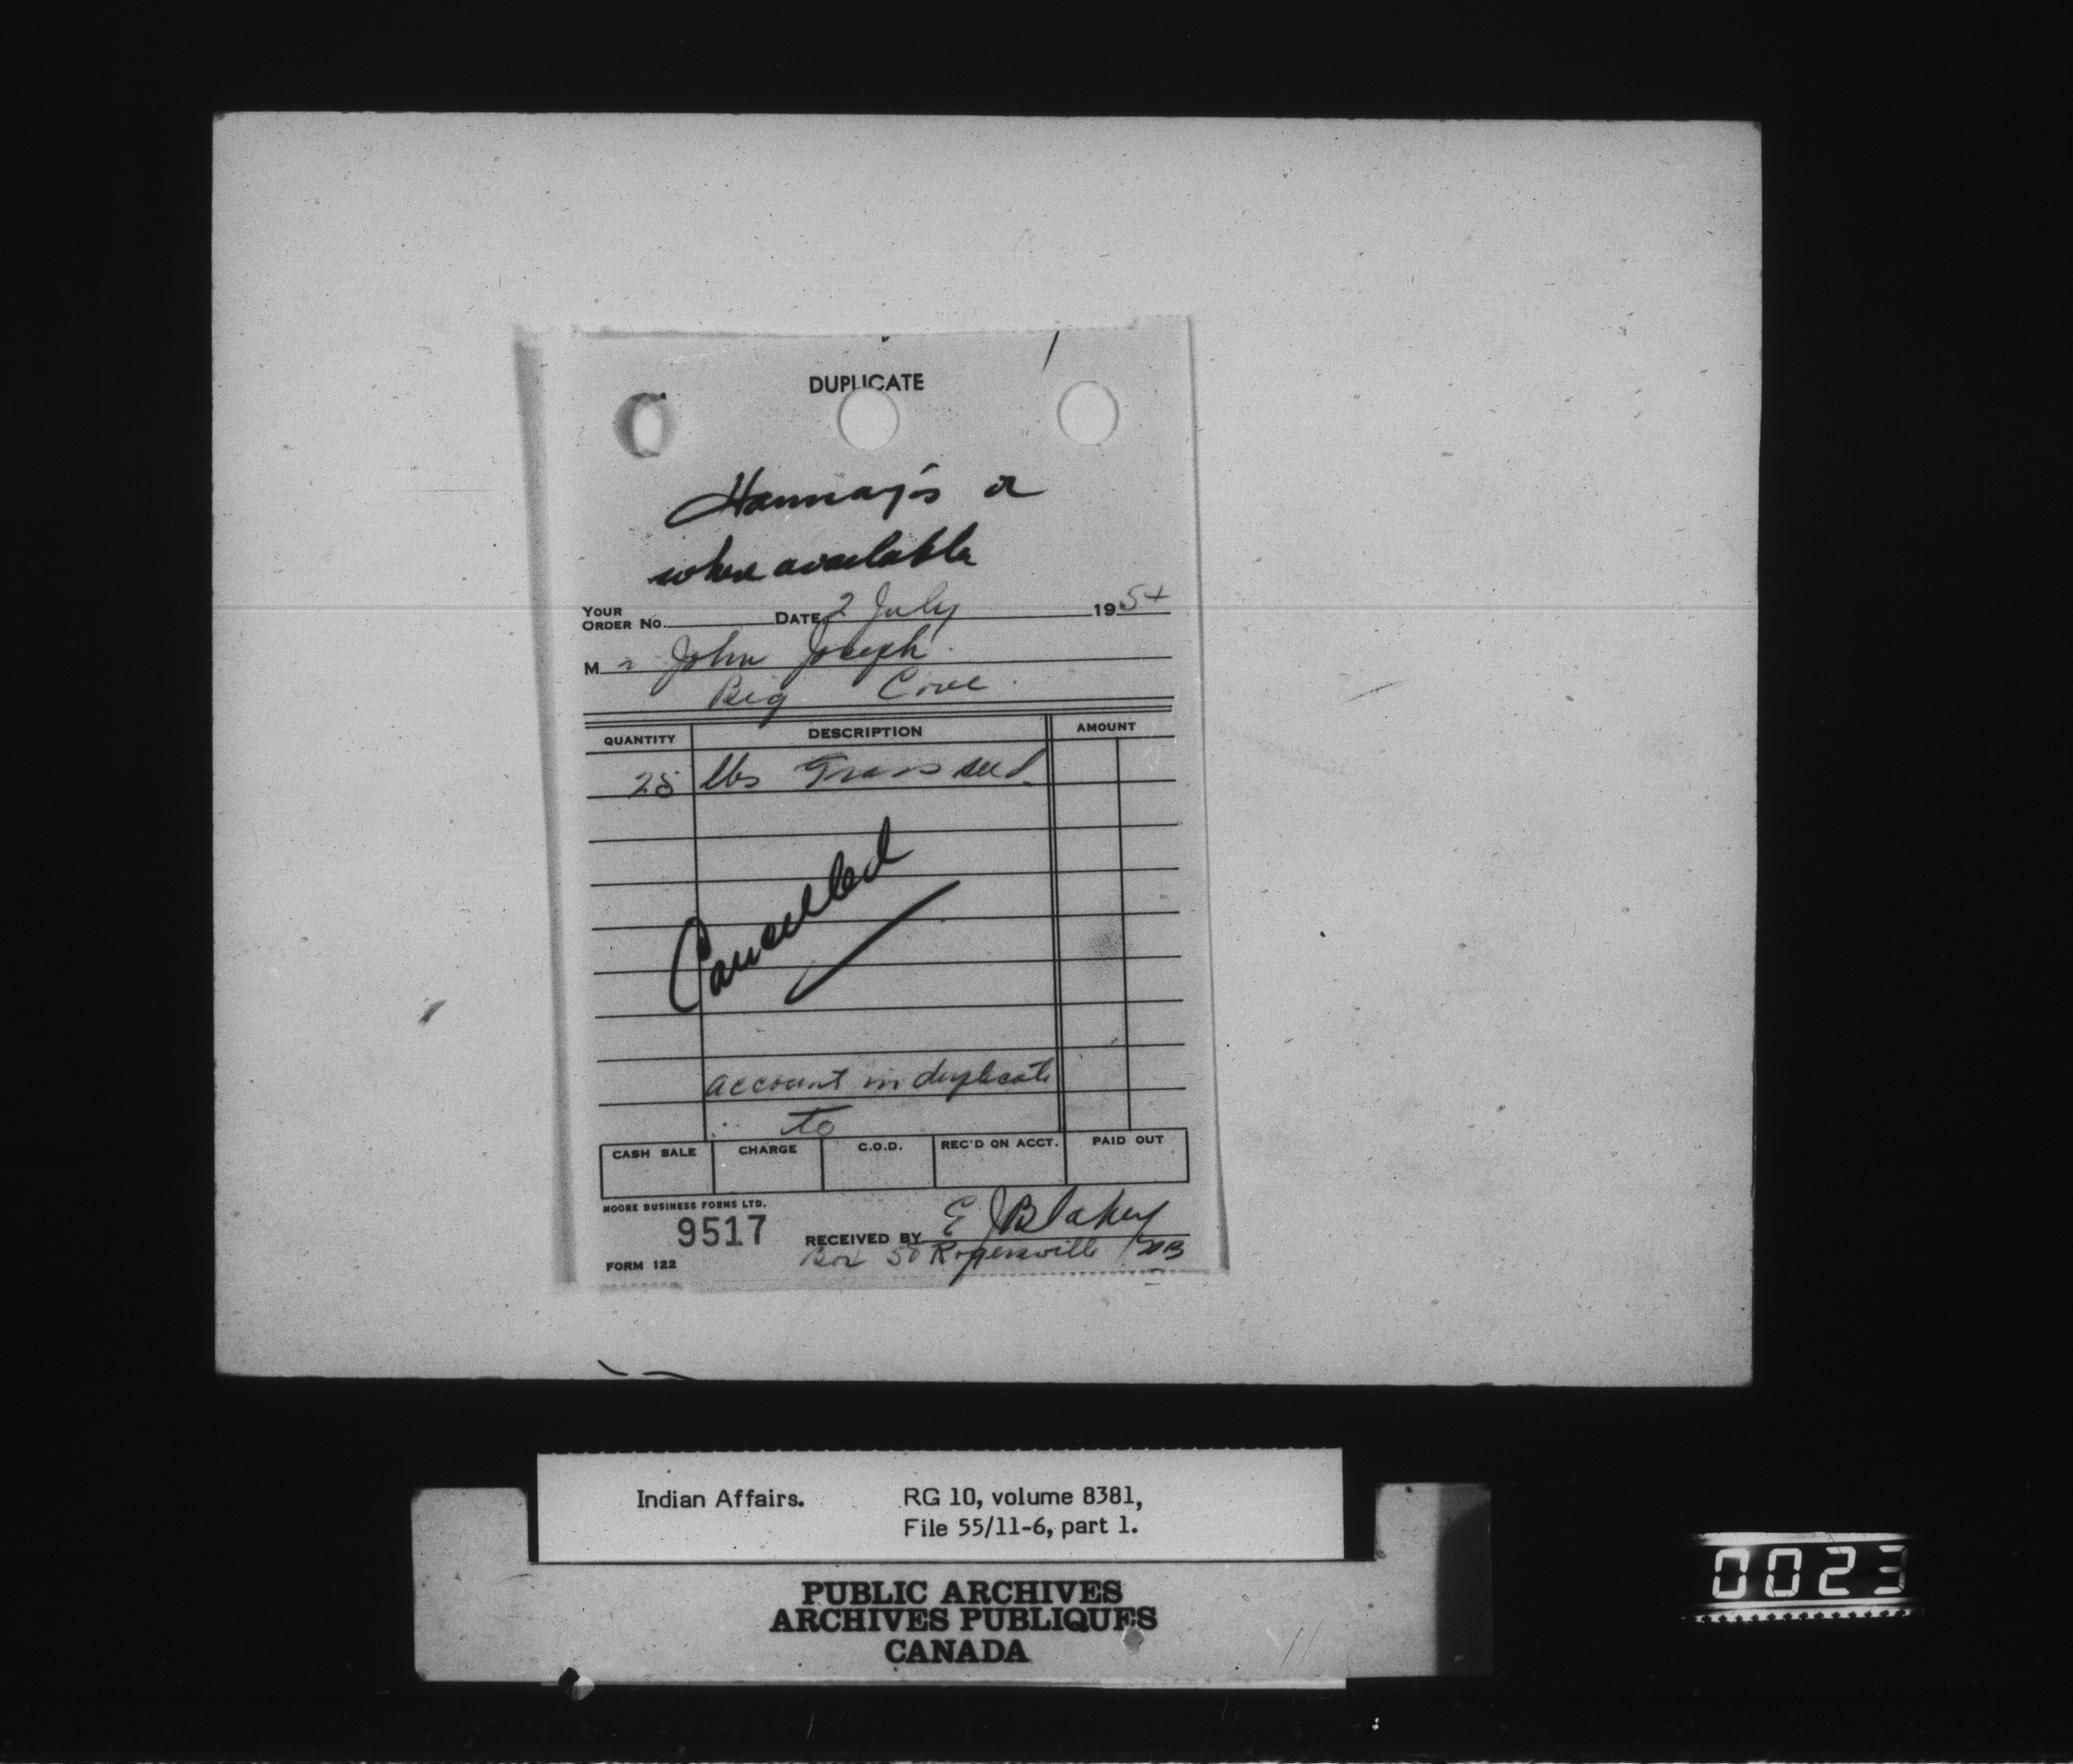 DUPLICATE
Hannay's or
where available
YOUR ORDER No. DATE 2 July 1954
Mr John Joseph
Big Cove
QUANTITY DESCRIPTION AMOUNT
25 lbs Grass seed
Cancelled
account in duplicate
to
CASH SALE CHARGE C.O.D. REC'D ON ACCT. PAID OUT
MOORE BUSINESS FORMS LTD.
9517 RECEIVED BY E J Blakey
FORM 122 Box 50 Rogersville NB
Indian Affairs. RG 10, volume 8381,
File 55/11-6, part 1.
PUBLIC ARCHIVES
ARCHIVES PUBLIQUES
CANADA
0023